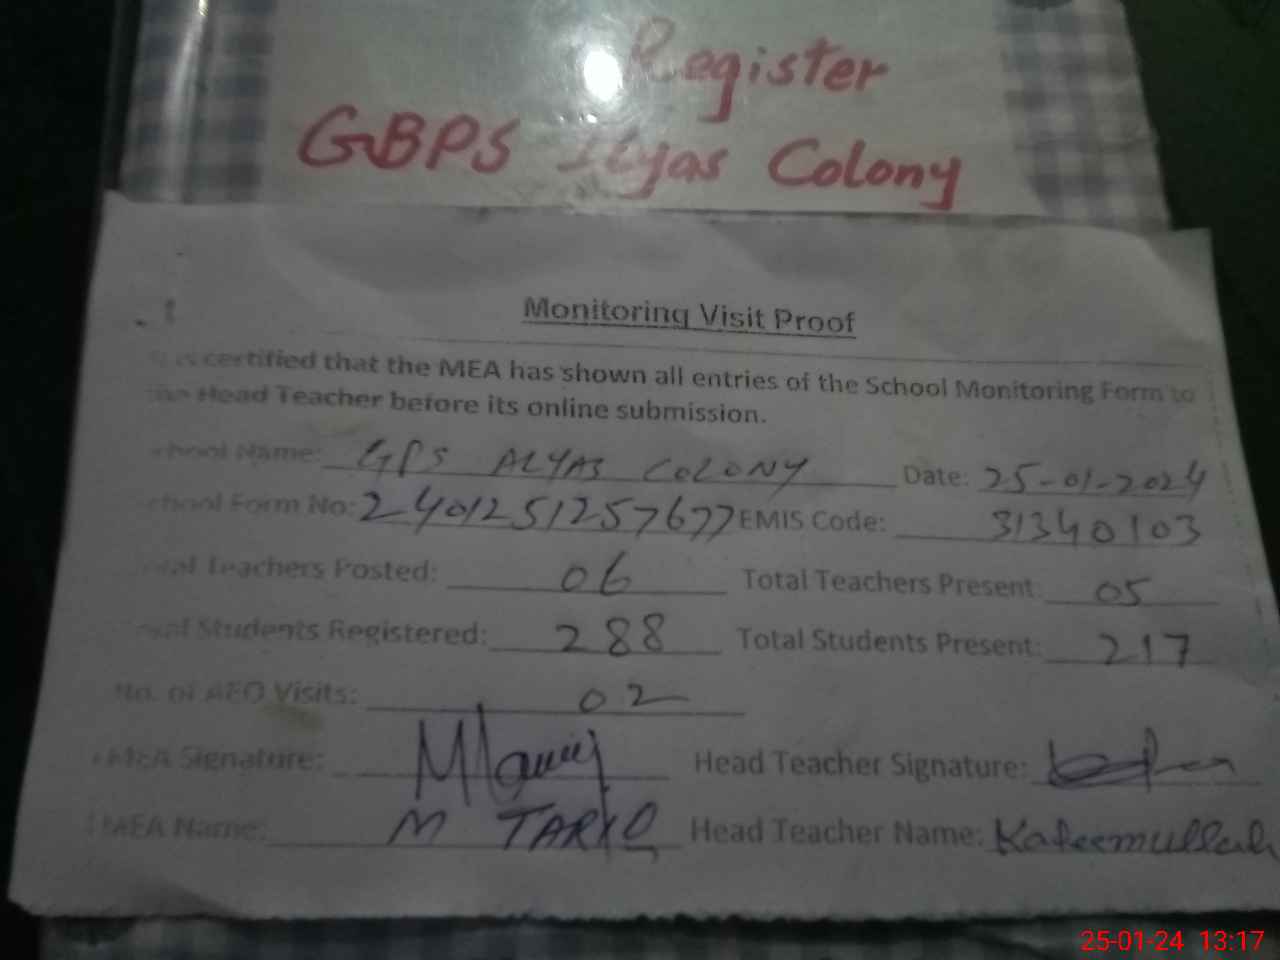 Register
GBPS Ilyas Colony
Monitoring Visit Proof
It is certified that the MEA has shown all entries of the School Monitoring Form to
the Head Teacher before its online submission.
School Name: GPS ALYAS COLONY Date: 25-01-2024
School Form No: 2401251257677 EMIS Code: 31340103
Total Teachers Posted: 06 Total Teachers Present: 05
Total Students Registered: 288 Total Students Present: 217
No. of AEO Visits: 02
MEA Signature: Head Teacher Signature:
MEA Name: M TARIQ Head Teacher Name: Kaleemullah
25-01-24 13:17